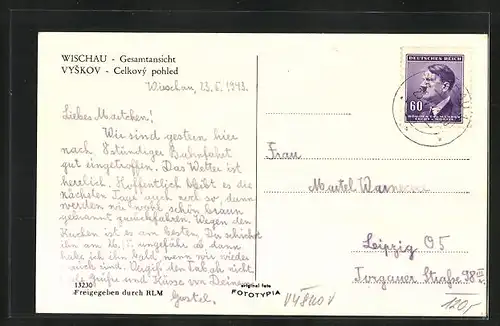 WISCHAU - Gesamtansicht
VYŠKOV - Celkový pohled
Wischau, 23.6.1943.
Liebes Martchen!
Wir sind gestern hier
nach 8stündiger Bahnfahrt
gut eingetroffen. Das Wetter ist
herrlich. Hoffentlich bleibt es die
nächsten Tage auch noch so, dann
werden wir wohl schön braun
gebrannt zurückfahren. Wegen den
Kuchen ist es am besten, Du schickst
ihn am ungefähr ab dann
habe ich ihn bald, wenn wir wieder
auch sind. Vergiß den Tabak nicht
Grüße und Küsse von Deiner
Gustel.
13230
Freigegeben durch RLM
original foto
FOTOTYPIA
VYŠKOV
DEUTSCHES REICH
60
BÖHMEN UND MÄHREN
ČECHY A MORAVA
Frau
Martel Warnecke
Leipzig O5
Torgauer Straße 98
120,-